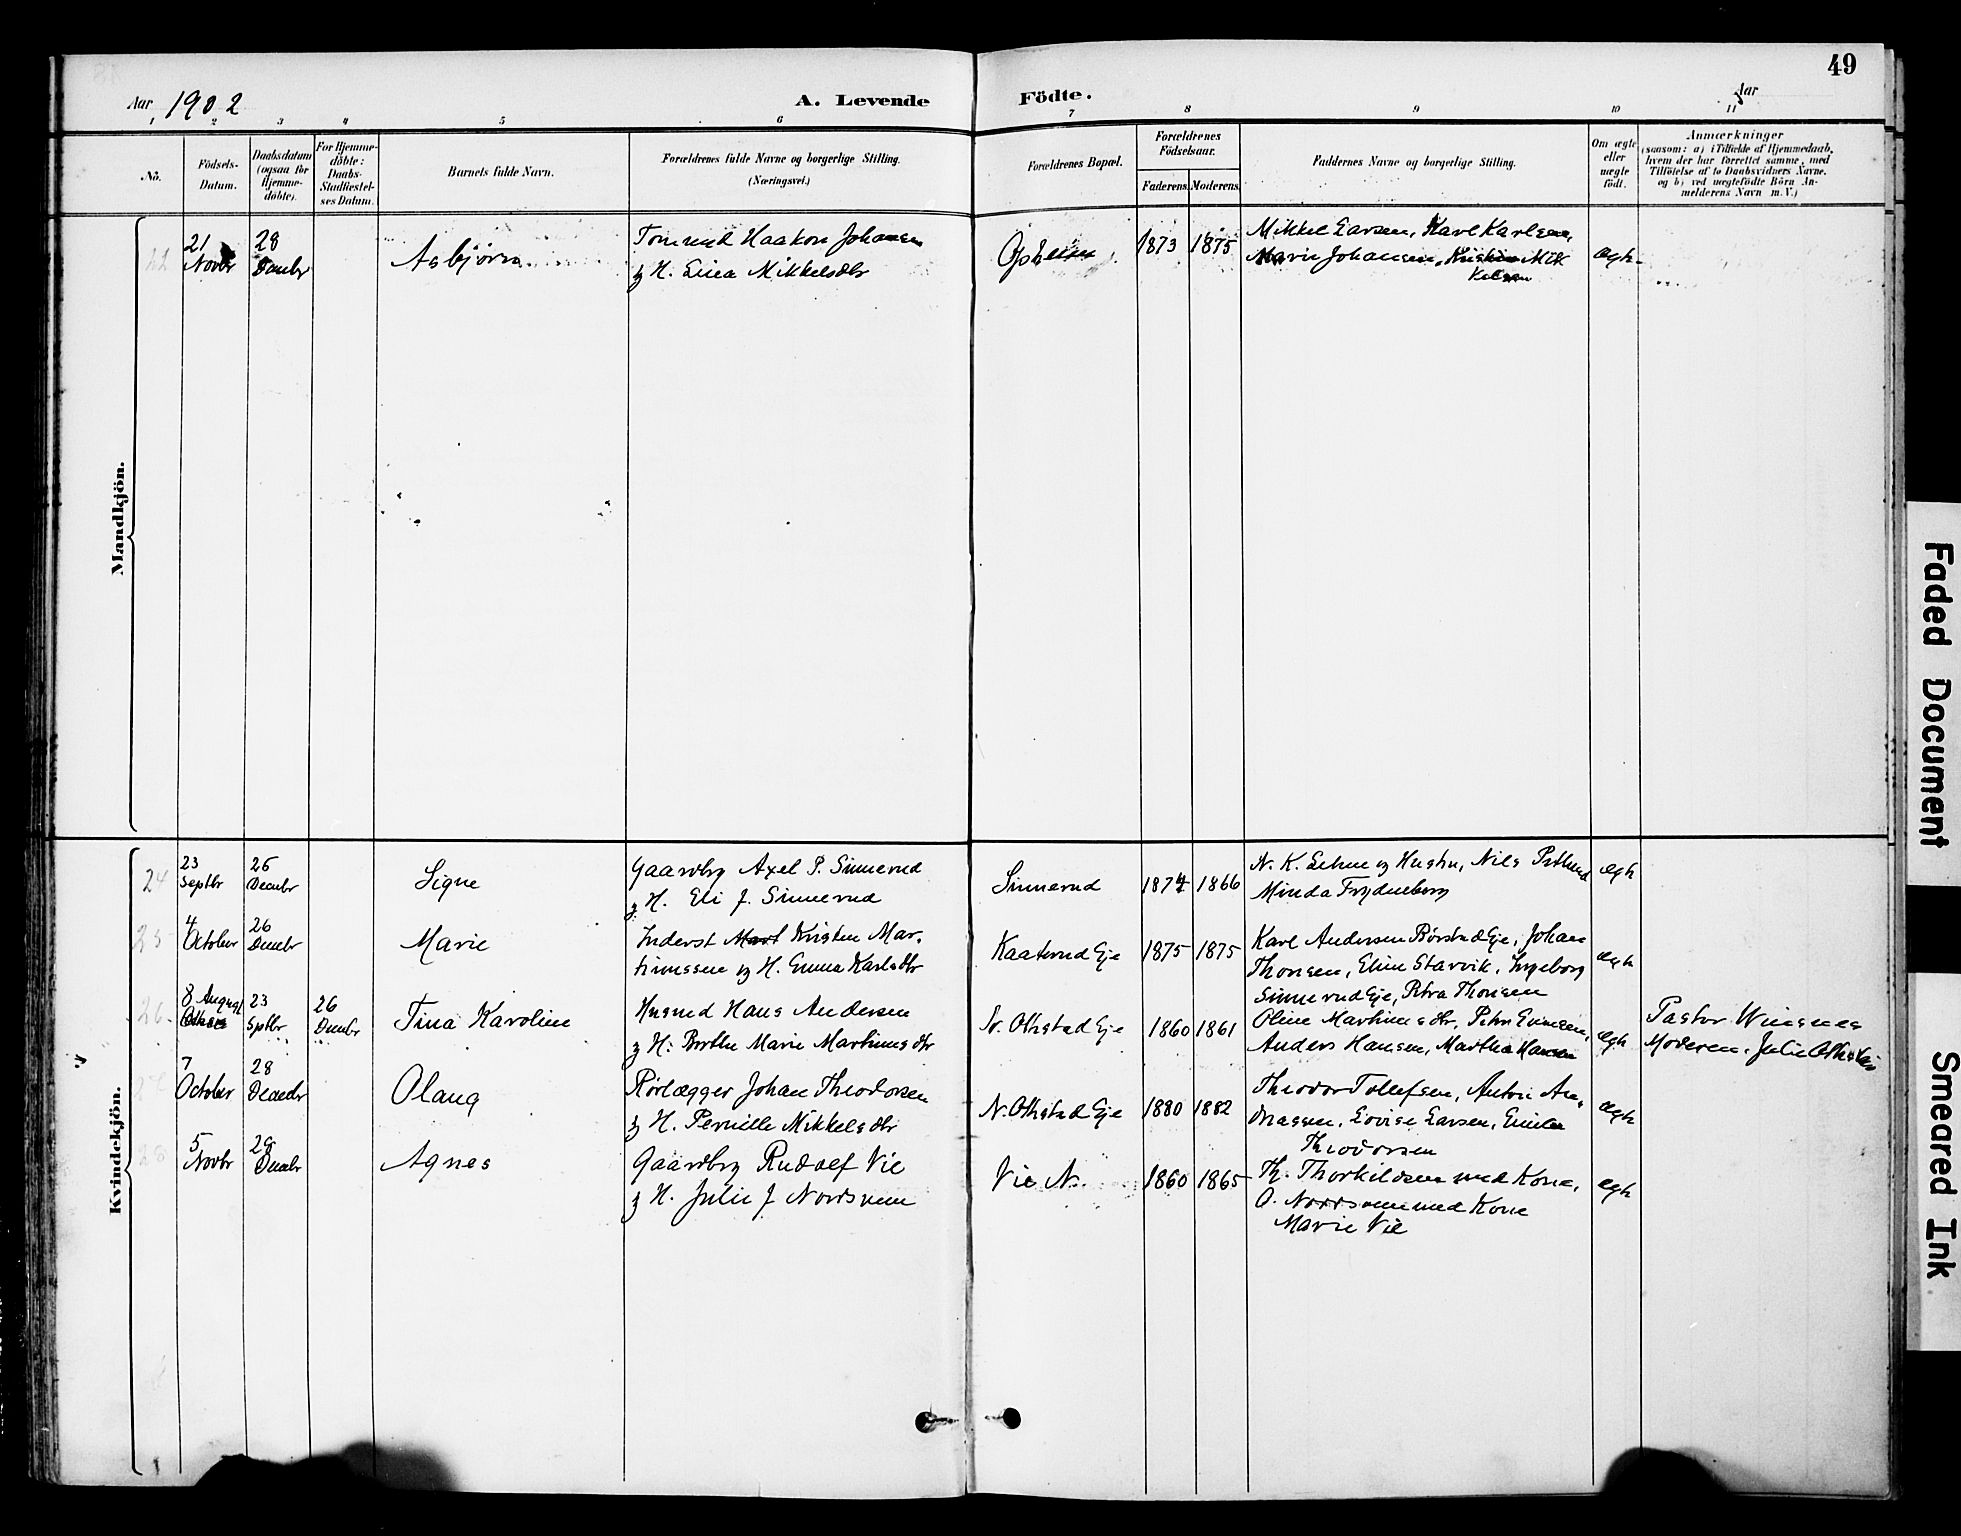 49
Aar 1902
A. Levende
Födte.
Aar
1 2 3 4 5 6 7 8 9 10 11
No.
Födsels-
Datum.
Daabsdatum
(ogsaa for
Hjemme-
döbte).
For Hjemme-
döbte:
Daabs-
Stadfæstel-
ses Datum.
Barnets fulde Navn.
Forældrenes fulde Navne og borgerlige Stilling.
(Næringsvei.)
Forældrenes Bopæl.
Forældrenes
Födselsaar.
Faderens. Moderens.
Faddernes Navne og borgerlige Stilling.
Om ægte
eller
uægte
födt.
Anmærkninger
(saasom: a) i Tilfælde af Hjemmedaab,
hvem der har forrettet samme, med
Tilföielse af to Daabsvidners Navne.
og b) ved uægtefödte Börn An-
melderens Navn m. V.)
Mandkjön.
21
Novbr
28
Decmbr
Asbjörn
Tömmnd Haakon Johansen
og H. Lina Mikkelsdtr
1873 1875
Mikkel Larsen, Karl Karlsen,
Marie Johansen, Kristian Mik
kelsen
ægte
Kvindekjön.
24
23
Septbr
26
Decmbr
Signe
Gaardbrg Axel P. Sinnerud
og H. Eli J. Sinnerud
Sinnerud
1874 1866
N. K. Lehne og Hustru, Nils
Minda Frydenborg
ægte
25
4
October
26
Decmbr
Marie
Inderst Kristen Mar-
tinussen og H. Emma Karlsdtr
Kaaterud Eje
1875 1875
Karl Andersen Börstad Eje, Johan
Thonsen, Eline Starvik, Ingeborg
Sinnerud Eje, Petra Thonsen
ægte
26
8 August
23
Septbr
26
Decmbr
Tina Karoline
Husmd Hans Andersen
og H. Berthe Marie Martinusdtr
N. Othstad Eje
1860 1861
Oline Martinusdtr, Peter Evensen,
Anders Hansen, Martha Hansen
ægte
Pastor Wiesnes
Moderen, Julie
7
October
28
Decmbr
Olaug
Rörlægger Johan Theodorsen
og H. Pernille Mikkelsdtr
N. Othstad Eje
1880 1882
Theodor Tollefsen, Anton An-
dreassen, Lovise Larsen, Emilie
Theodorsen
ægte
28
5
Novbr
29
Decmbr
Agnes
Gaardbrg Rudolf Vie
og H. Julie J Nordsveen
Vie N.
1860 1865
Th. Thorkildsen med Kone,
O. Nordsveen med Kone
Marie Vie
ægte
Faded Document
Smeared Ink